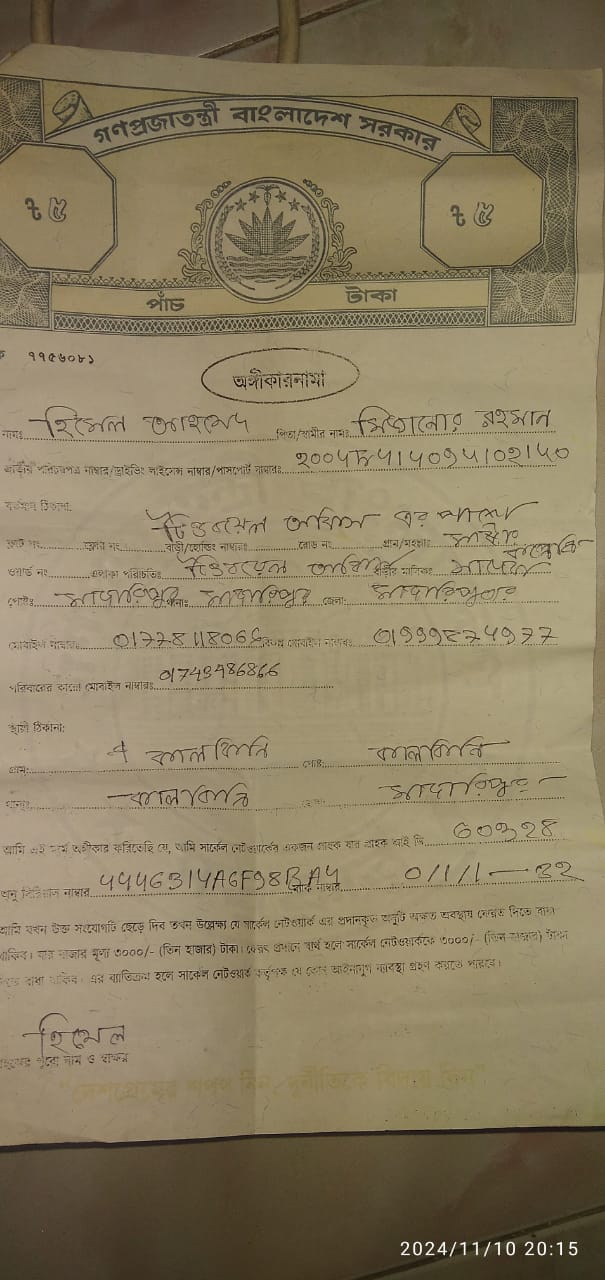 গণপ্রজাতন্ত্রী বাংলাদেশ সরকার
৳ ৫ ৳ ৫
পাঁচ টাকা
ক ৭৭৫৬০৮১
অঙ্গীকারনামা
নামঃ হিমেল আহমেদ পিতা/স্বামীর নামঃ মিজানোর রহমান
জাতীয় পরিচয়পত্র নাম্বার/ড্রাইভিং লাইসেন্স নাম্বার/পাসপোর্ট নাম্বারঃ
বর্তমান ঠিকানা:
অফিস এর পাশে
ফ্লাট নং ফ্লোর নং বাড়ী/হোল্ডিং নাম্বারঃ রোড নং গ্রাম/মহল্লাঃ
ওয়ার্ড নং এলাকা পরিচিতিঃ বাড়ীর মালিকঃ
পোষ্টঃ মাদারিপুর থানাঃ মাদারিপুর জেলা: মাদারিপুর
মোবাইল নাম্বারঃ বিকল্প মোবাইল নাম্বারঃ
পরিবারের কারো মোবাইল নাম্বারঃ 01749986866
স্থায়ী ঠিকানা:
গ্রাম: কালকিনি পোষ্ট: কালকিনি
থানাঃ কালকিনি জেলা: মাদারিপুর
আমি এই মর্মে অঙ্গীকার করিতেছি যে, আমি সার্কেল নেটওয়ার্কের একজন গ্রাহক যার গ্রাহক আই ডি
অনু সিরিয়াল নাম্বার নাম্বার 0/1/1-32
আমি যখন উক্ত সংযোগটি ছেড়ে দিব তখন উল্লেক্ষ্য যে সার্কেল নেটওয়ার্ক এর প্রদানকৃত অনুটি অক্ষত অবস্থায় ফেরত দিতে বাধ্য
থাকিব। যার বাজার মূল্য ৩০০০/- (তিন হাজার) টাকা। ফেরৎ প্রদানে ব্যর্থ হলে সার্কেল নেটওয়ার্ককে ৩০০০/- (তিন হাজার) টাকা
দিতে বাধ্য থাকিব। এর ব্যতিক্রম হলে সার্কেল নেটওয়ার্ক কর্তৃপক্ষ যে কোন আইনানুগ ব্যবস্থা গ্রহণ করতে পারবে।
হিমেল
গ্রাহকের পুরো নাম ও স্বাক্ষর
"দেশপ্রেমের শপথ নিন, দুর্নীতিকে বিদায় দিন"
2024/11/10 20:15